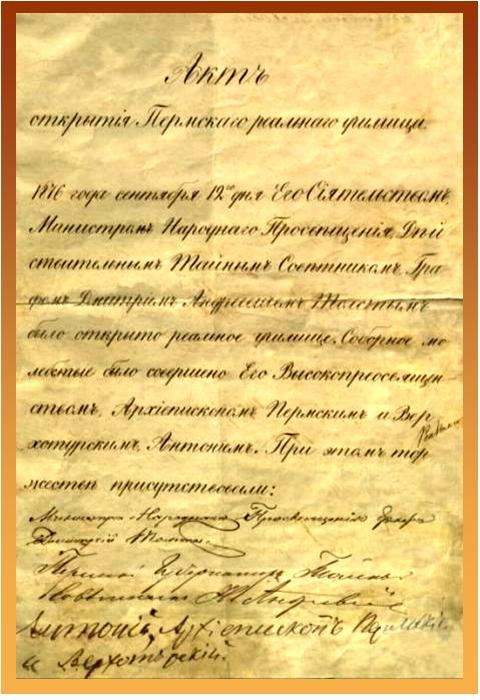 Актъ
открытія Пермскаго реальнаго училища.
1876 года сентября 12го дня Его Сіятельствомъ,
Министромъ Народнаго Просвѣщенія, Дѣй
ствительнымъ Тайнымъ Совѣтникомъ, Гра
фомъ Дмитріемъ Андреевичемъ Толстымъ
было открыто реальное училище. Соборное мо
лебствіе было совершено Его Высокопреосвящен-
ствомъ, Архіепископомъ Пермскимъ и Вер
хотурскимъ, Антоніемъ. При этомъ тор
жествѣ присутствовали:
Министръ Народнаго Просвѣщенія Графъ
Дмитрій Толстой
Пермскій Губернаторъ Тайный
Совѣтникъ
Антоній, Архіепископъ Пермскій
и Верхотурскій.